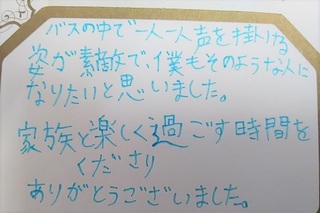 バスの中で一人一人声を掛ける
姿が素敵で、僕もそのような人に
なりたいと思いました。
家族と楽しく過ごす時間を
くださり
ありがとうございました。